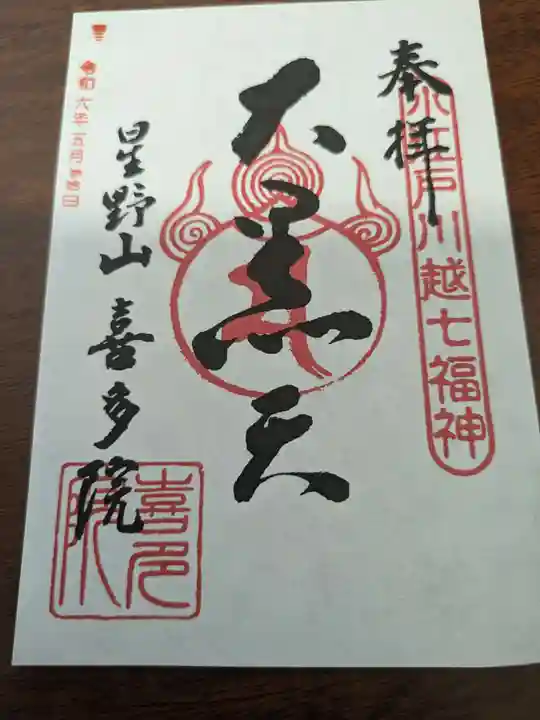 奉拝
小江戸川越七福神
大黒天
星野山 喜多院
喜多院
令和六年五月